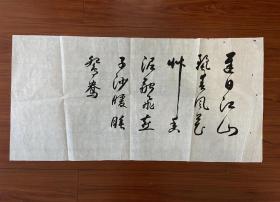 遲日江山
麗春風花
艸香
泥融飛燕
子沙暖睡
鴛鴦